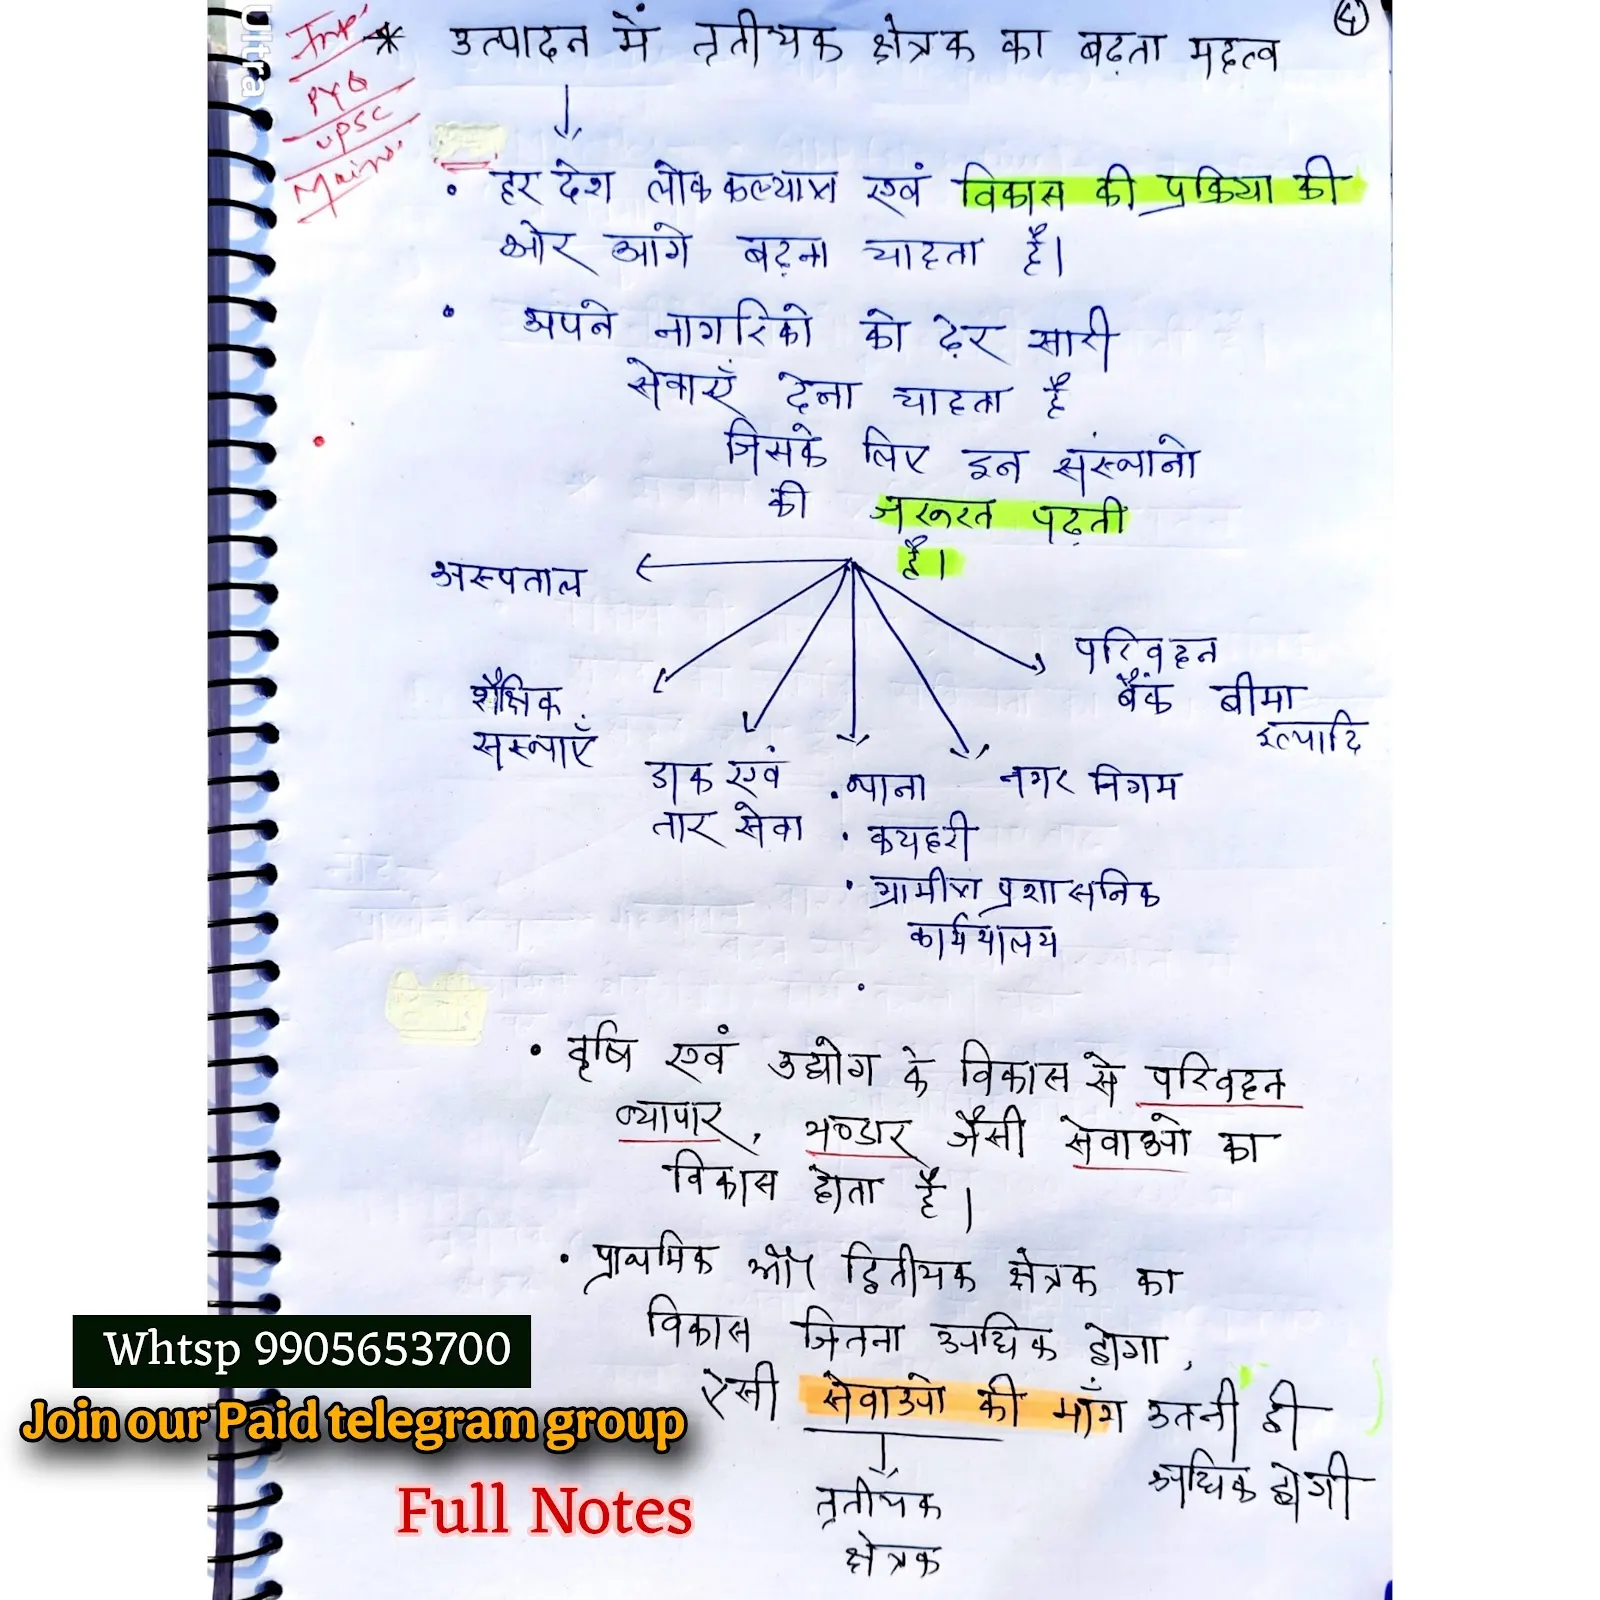 ④
Imp
* उत्पादन में तृतीयक क्षेत्रक का बढ़ता महत्व
PYQ
UPSC
Mains.
• हर देश लोक कल्याण एवं विकास की प्रक्रिया की
ओर आगे बढ़ना चाहता है।
• अपने नागरिको को ढ़ेर सारी
सेवाएँ देना चाहता है
जिसके लिए इन संस्थानो
की जरूरत पढ़ती
है।
अस्पताल
शैक्षिक
संस्थाएँ
डाक एवं
तार सेवा
• थाना
• कचहरी
• ग्रामीण प्रशासनिक
कार्यालय
नगर निगम
परिवहन
बैंक बीमा
इत्यादि
• कृषि एवं उद्योग के विकास से परिवहन
व्यापार, भण्डार जैसी सेवाओ का
विकास होता है।
• प्राथमिक और द्वितीयक क्षेत्रक का
विकास जितना अधिक होगा,
ऐसी सेवाओ की माँग उतनी ही
अधिक होगी
तृतीयक
क्षेत्रक
Ultra
Whtsp 9905653700
Join our Paid telegram group
Full Notes